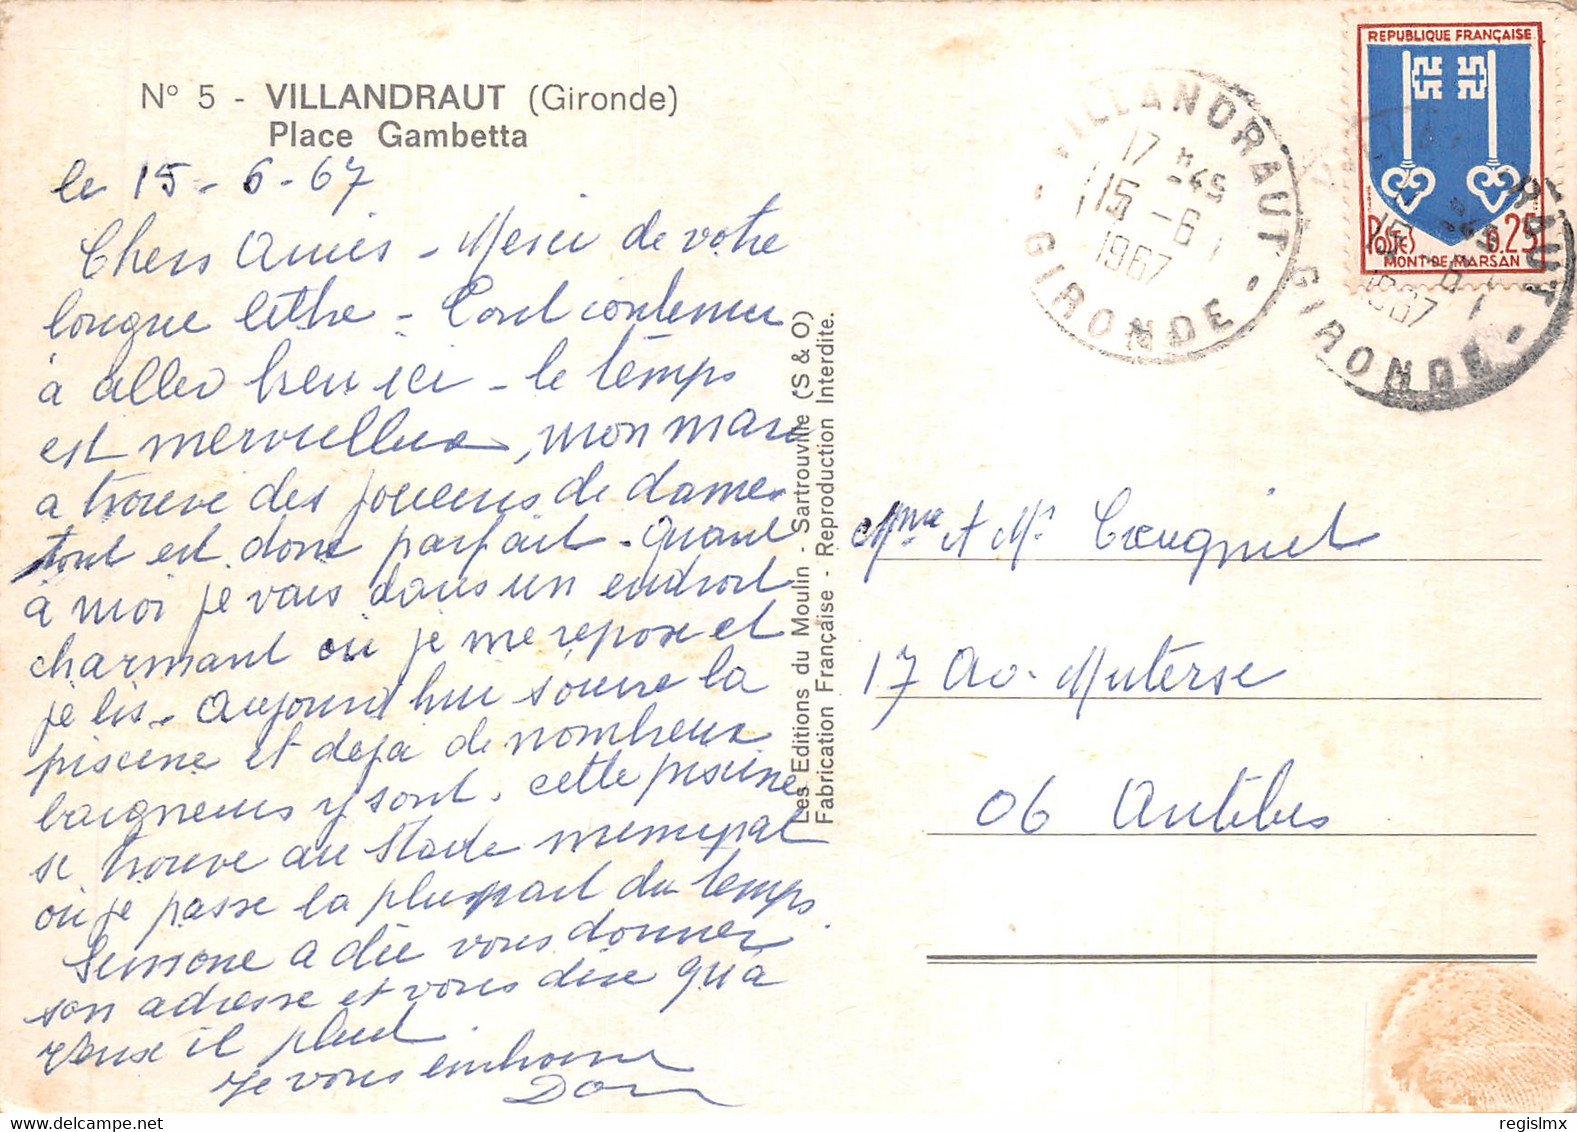 N° 5 - VILLANDRAUT (Gironde)
Place Gambetta
le 15-6-67
Chers Amies - Merci de votre
longue lettre - Tout continue
à aller bien ici - le temps
est merveilleux, mon mari
a trouvé des joueurs de dames
tout est donc parfait - Quant
à moi je vais dans un endroit
charmant où je me repose et
je lis - Aujourd'hui s'ouvre la
piscine et déjà de nombreux
baigneurs y sont. cette piscine
se trouve au stade municipal
où je passe la pluspart du temps.
a dû vous donner
son adresse et vous dire qu'à
il pleut
Je vous embrasse
Les Editions du Moulin - Sartrouville (S & O)
Fabrication Française - Reproduction Interdite.
REPUBLIQUE FRANÇAISE
POSTES 0.25
MONT-DE-MARSAN
VILLANDRAUT
17 H 45
15 - 6
1967
GIRONDE
RAUT
15
1967
GIRONDE
Mme et Mr
17 Av. Muterse
06 Antibes
regislmx